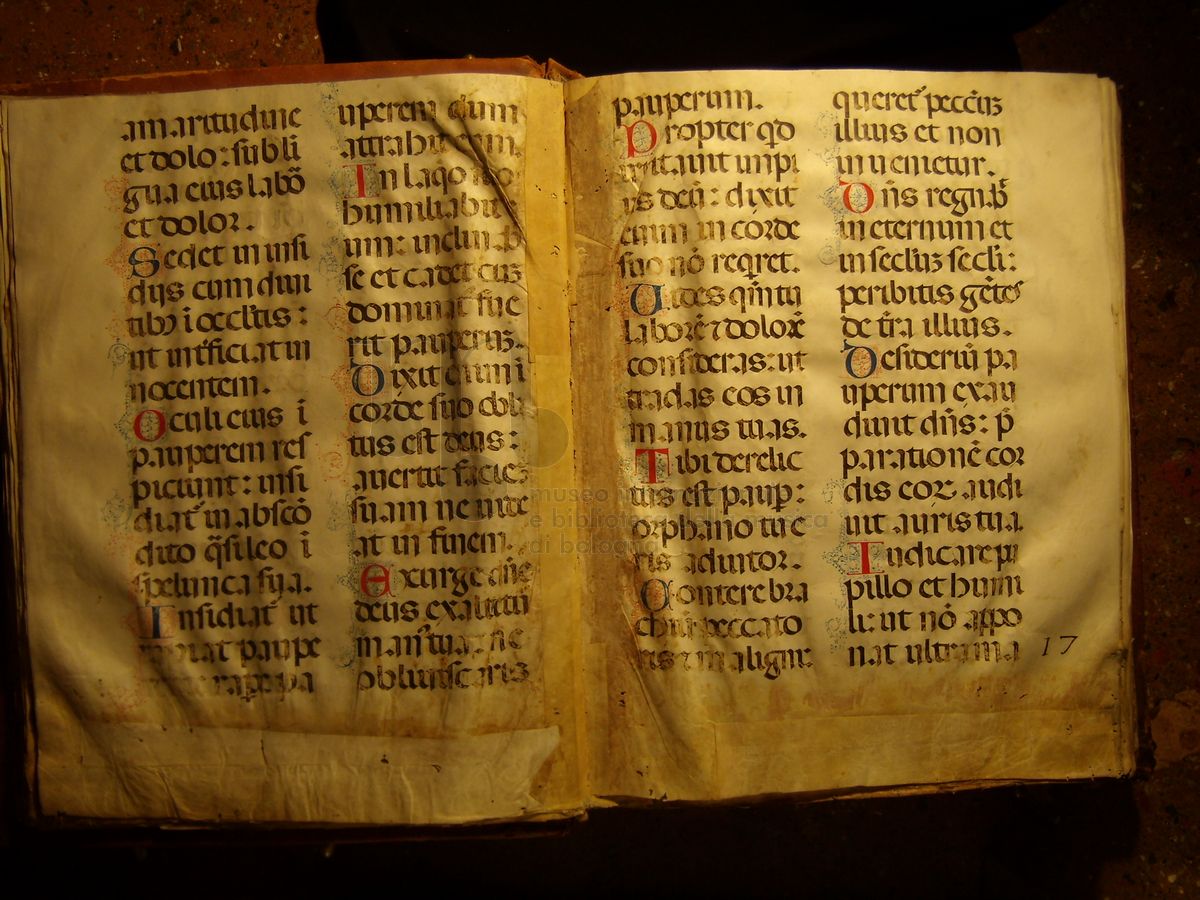 amaritudine
et dolo: subli
gua eius labō
et dolor.
Sedet in insi
diis cum diui
tibꝫ ī occl̄tis:
ut int̄ficiat in
nocentem.
Oculi eius ī
pauperem res
piciunt: insi
diat̄ in abscō
dito q̄si leo ī
spelunca sua.
Insidiat̄ ut
rapiat paupe
uperem dum
attrahit eum.
In laqo suo
humiliabit
eum: inclinab̄
se et cadet cuꝫ
dominat̄ fue
rit pauperuꝫ.
Dixit enim ī
corde suo obli
tus est deus:
auertit facieꝫ
suam ne uide
at in finem.
Exurge dn̄e
deus exaltet̄
man̄ tua: ne
obliuiscaris
pauperum.
Propter qd̄
irritauit impi
us deū: dixit
enim in corde
suo nō reqret.
Uides qm̄ tu
laborē ⁊ dolorē
consideras: ut
tradas eos in
manus tuas.
Tibi derelic
tus est paup̄:
orphano tu e
ris adiutor.
Contere bra
chiū peccato
ris ⁊ maligni:
queret̄ pecc̄uꝫ
illius et non
inuenietur.
Dn̄s regnab̄
in eternum et
in secl̄uꝫ secl̄i:
peribitis gētes
de t̄ra illius.
Desideriū pa
uperum exau
diuit dn̄s: p̄
parationē cor
dis eoꝝ audi
uit auris tua.
Iudicare pu
pillo et humi
li: ut nō appo
nat ultra ma
17
museo
e biblioteca
di bologna